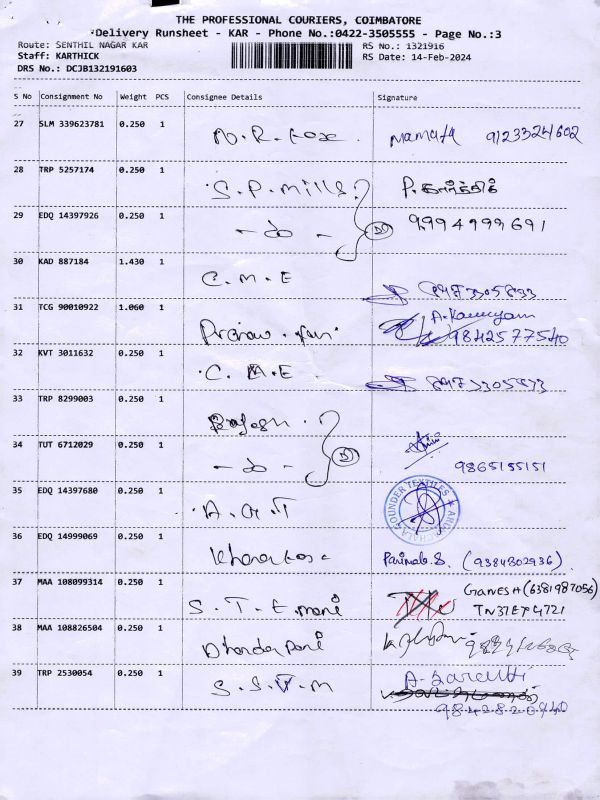 THE PROFESSIONAL COURIERS, COIMBATORE
Delivery Runsheet - KAR - Phone No.:0422-3505555 - Page No.:3
Route: SENTHIL NAGAR KAR
RS No.: 1321916
Staff: KARTHICK
RS Date: 14-Feb-2024
DRS No.: DCJB132191603
S No Consignment No Weight PCS Consignee Details Signature
27 SLM 339623781 0.250 1 N.R. Mamata 9123324602
28 TRP 5257174 0.250 1 S.P. Mills P. கார்த்திக்
29 EDQ 14397926 0.250 1 - do - 9994999691
30 KAD 887184 1.430 1 C.M.E
31 TCG 90010922 1.060 1 9842577540
32 KVT 3011632 0.250 1 C.M.E
33 TRP 8299003 0.250 1
34 TUT 6712029 0.250 1 - do - 9865155151
35 EDQ 14397680 0.250 1 A.G.T
FOUNDER TEXTILES
36 EDQ 14999069 0.250 1 (9384802936)
37 MAA 108099314 0.250 1 S.T.E. mani GANESH (6381987056)
TN37EF4721
38 MAA 108826504 0.250 1
39 TRP 2530054 0.250 1 S.S.V.M
9842820940